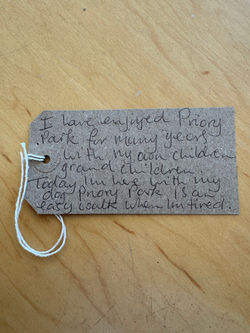 I have enjoyed Priory
Park for many years
with my own children
grandchildren
Today Im here with my
dog Priory Park is an
easy walk when Im tired.